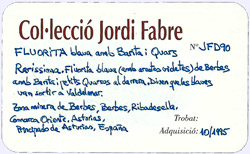 Col·lecció Jordi Fabre
FLUORITA blava amb Barita i Quars Nº JFD90
Raríssima. Fluorita blava (amb zonats violetes) de Berbes
amb Barita i petits Quarsos al darrera. Diuen que les blaves
van sortir a Valdelmar.
Zona minera de Berbes, Berbes, Ribadesella.
Comarca Oriente, Asturias, Trobat:
Principado de Asturias, España Adquisició: 10/1995